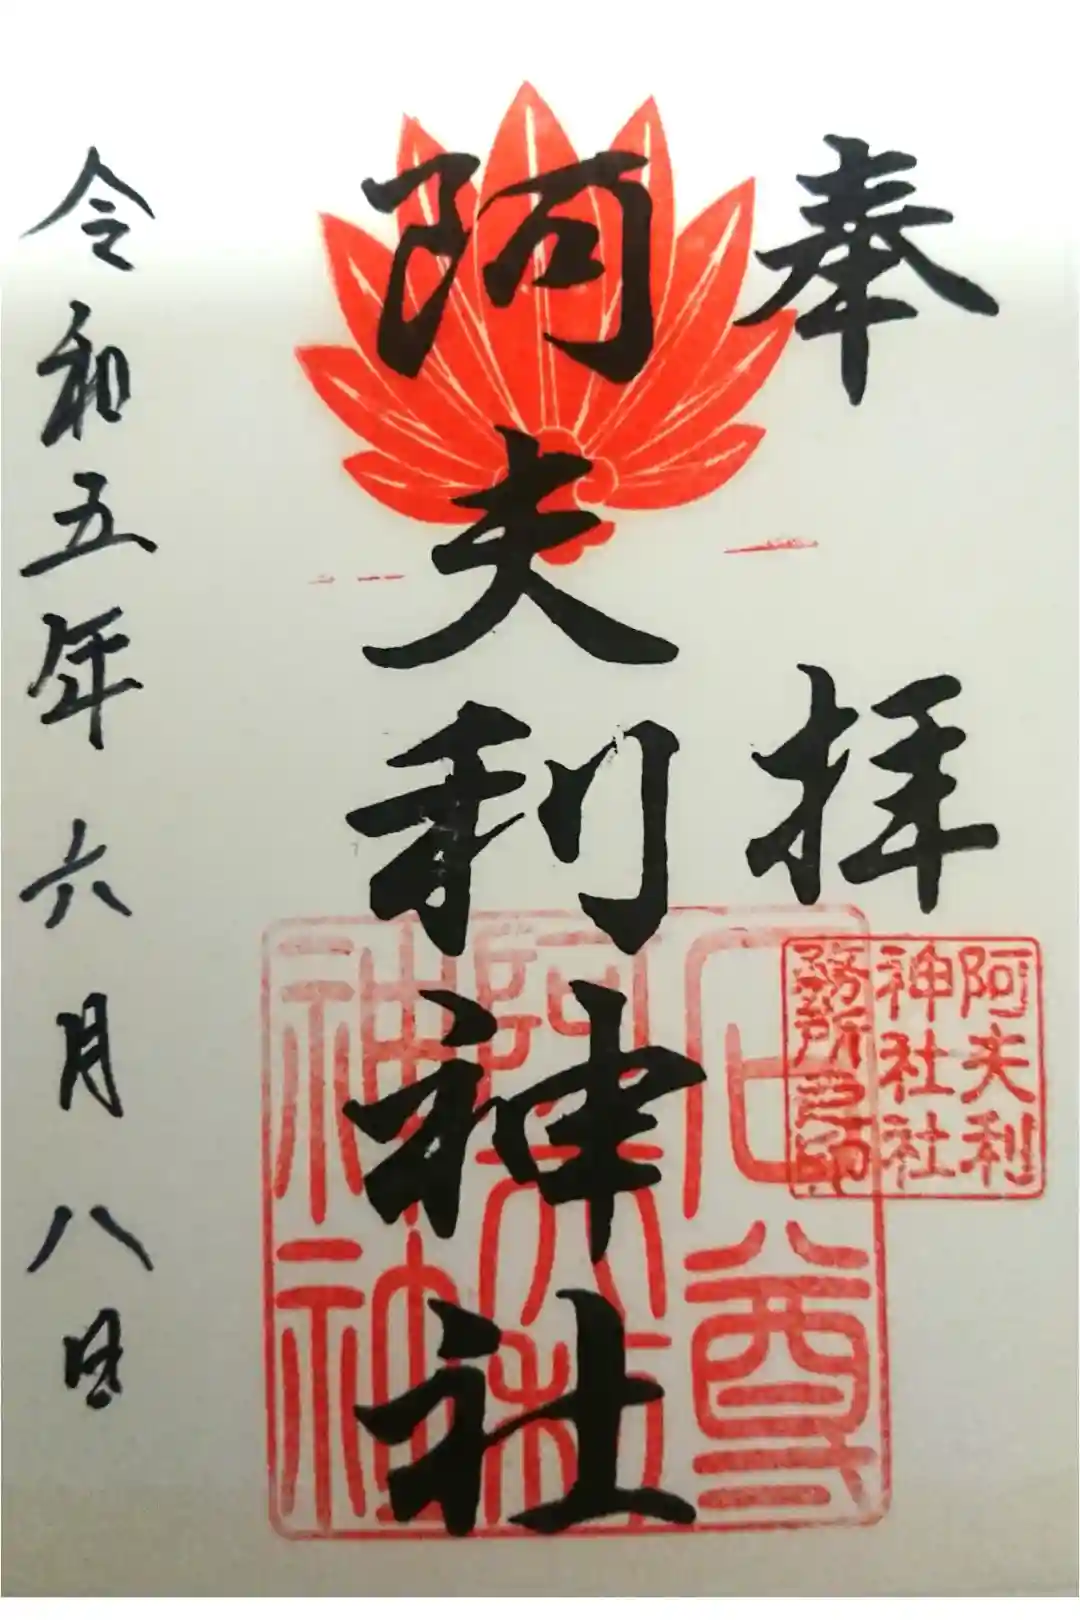 奉拝
阿夫利神社
令和五年六月八日
石尊
阿夫利
神社
阿夫利
神社社
務所之印